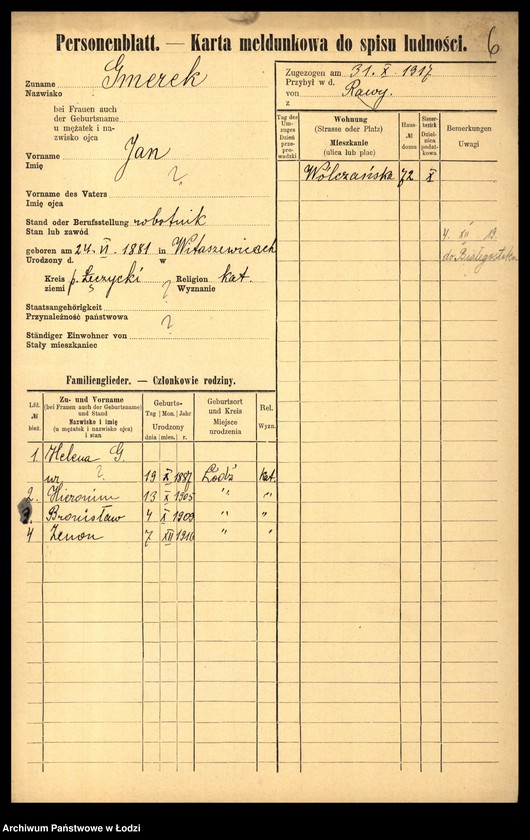 Personenblatt. — Karta meldunkowa do spisu ludności. 6
Zuname
Nazwisko
Gmerek
bei Frauen auch
der Geburtsname
u mężatek i na-
zwisko ojca
Vorname
Imię
Jan
?
Vorname des Vaters
Imię ojca
Stand oder Berufsstellung robotnik
Stan lub zawód
geboren am 24. VI. 1881 in Witaszewicach
Urodzony d. w
Kreis p. Łęczycki Religion kat.
ziemi Wyznanie
?
Staatsangehörigkeit
Przynależność państwowa
?
Ständiger Einwohner von
Stały mieszkaniec
Zugezogen am 31. X. 1917
Przybył w d.
von Rawy.
z
Tag des
Um-
zuges
Dzień
prze-
pro-
wadzki
Wohnung
(Strasse oder Platz)
Mieszkanie
(ulica lub plac)
Haus-
№
domu
Steuer-
bezirk
Dziel-
nica
podat-
kowa
Bemerkungen
Uwagi
Wólczańska 72 X
4. XII 19.
do Białegostoku
Familienglieder. — Członkowie rodziny.
Lfd.
№
bież.
Zu- und Vorname
(bei Frauen auch der Geburtsname)
und Stand
Nazwisko i imię
(u mężatek i nazwisko ojca)
i stan
Geburts-
Tag Mon. Jahr
Urodzony
dnia mies. r.
Geburtsort
und Kreis
Miejsce
urodzenia
Rel.
Wyzn.
1. Helena G.
ur ? 19 X 1887 Łódź Kat.
2. Hieronim 13 X 1905 " "
3. Bronisław 4 X 1909 " "
4 Zenon 7 XII 1916 " "
Archiwum Państwowe w Łodzi